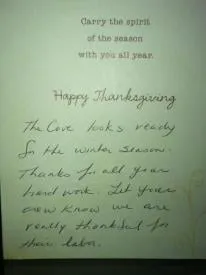 Carry the spirit
of the season
with you all year.
Happy Thanksgiving
The Cove looks ready
for the winter season.
Thanks for all your
hard work. Let your
crew know we are
really thankful for
their labor.